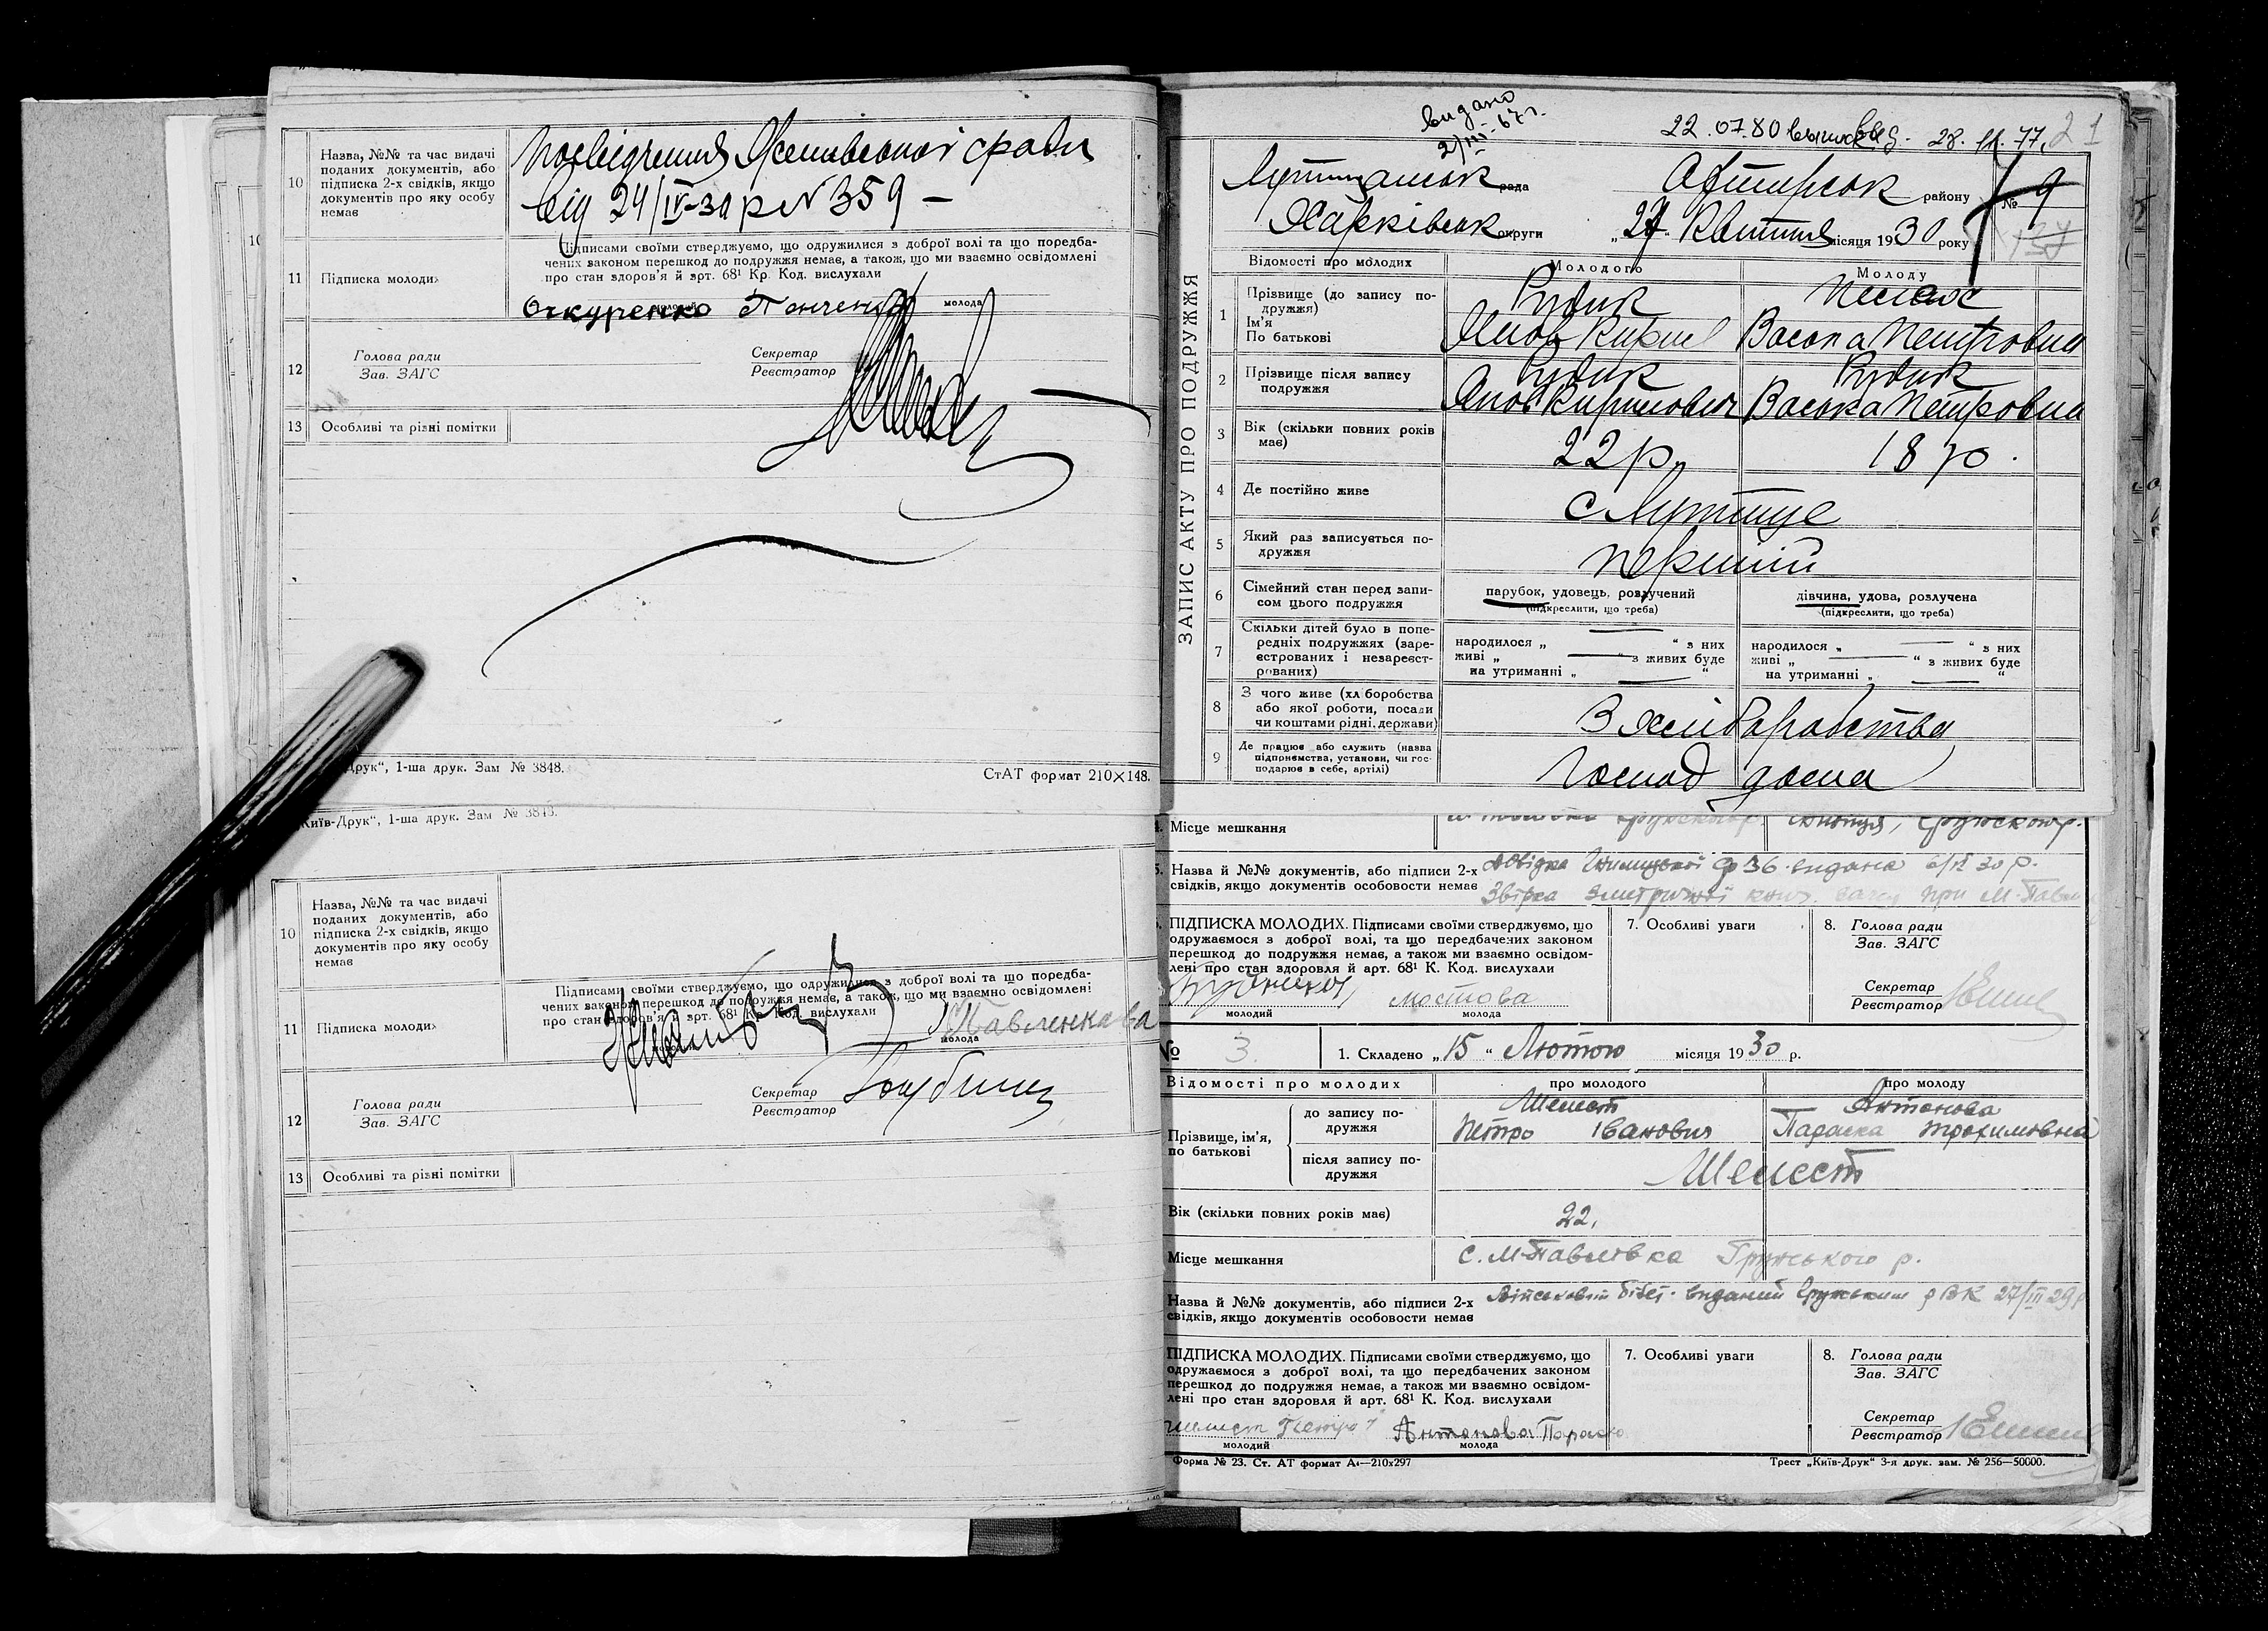 10
Назва, №№ та час видачі
поданих документів, або
підписка 2-х свідків, якщо
документів про яку особу
немає
від 24/IV-30 р N 359 –
11
Підписка молодих
Підписами своїми стверджуємо, що одружилися з доброї волі та що поредба-
чених законом перешкод до подружжя немає, а також, що ми взаємно освідомлені
про стан здоров'я й арт. 68¹ Кр. Код. вислухали
Очкуренко Панченко
молода
12
Голова ради
Зав. ЗАГС
Секретар
Реєстратор
13
Особливі та різні помітки
Друк", 1-ша друк. Зам № 3848.
СтАТ формат 210×148.
Київ-Друк", 1-ша друк. Зам № 3848.
10
Назва, №№ та час видачі
поданих документів, або
підписка 2-х свідків, якщо
документів про яку особу
немає
11
Підписка молодих
Підписами своїми стверджуємо, що одружилися з доброї волі та що поредба-
чених законом перешкод до подружжя немає, а також, що ми взаємно освідомлені
про стан здоров'я й арт. 68¹ Кр. Код. вислухали
молода
12
Голова ради
Зав. ЗАГС
Секретар
Реєстратор
13
Особливі та різні помітки
видано
2/III-67 г.
22.07.80
28.11.77. 21
рада
району
№ 9
Харківськ округи
„27 Квітня місяця 1930 року
ЗАПИС АКТУ ПРО ПОДРУЖЖЯ
Відомості про молодих
Молодого
Молоду
1
Прізвище (до запису по-
дружжя)
Ім'я
По батькові
Рудик
Яков Кирил
Васька Петровна
2
Прізвище після запису
подружжя
Рудик
Рудик
Яков Кирилович
Васька Петровна
3
Вік (скільки повних років
має)
22 р.
18 ро.
4
Де постійно живе
с Лутище
5
Який раз записується по-
дружжя
перший
6
Сімейний стан перед запи-
сом цього подружжя
парубок, удовець, розлучений
(підкреслити, що треба)
дівчина, удова, розлучена
(підкреслити, що треба)
7
Скільки дітей було в попе-
редніх подружжях (заре-
єстрованих і незареєст-
рованих)
народилося „ — “ з них
живі „ — “ з живих буде
на утриманні „ — “
народилося „ — “ з них
живі „ — “ з живих буде
на утриманні „ — “
8
З чого живе (хліборобства
або якої роботи, посади
чи коштами рідні, держави)
З хліборобства
9
Де працює або служить (назва
підприємства, установи, чи гос-
подарює в себе, артілі)
Господ дома
Місце мешкання
Назва й №№ документів, або підписи 2-х
свідків, якщо документів особовости немає
ПІДПИСКА МОЛОДИХ. Підписами своїми стверджуємо, що
одружаємося з доброї волі, та що передбачених законом
перешкод до подружжя немає, а також ми взаємно освідом-
лені про стан здоровля й арт. 68¹ К. Код. вислухали
мостова
молодий
молода
7. Особливі уваги
8. Голова ради
Зав. ЗАГС
Секретар
Реєстратор
№ 3.
1. Складено „15“ Лютого місяця 1930 р.
Відомості про молодих
про молодого
про молоду
Прізвище, ім'я,
по батькові
до запису по-
дружжя
Шелест
Петро Іванович
Антонова
Параска Трохимовна
після запису по-
дружжя
Шелест
Вік (скільки повних років має)
22,
Місце мешкання
с. М-Павлівка Грунського р.
Назва й №№ документів, або підписи 2-х
свідків, якщо документів особовости немає
Військовий білет. виданий Грунським РВК 27/III 29 р
ПІДПИСКА МОЛОДИХ. Підписами своїми стверджуємо, що
одружаємося з доброї волі, та що передбачених законом
перешкод до подружжя немає, а також ми взаємно освідом-
лені про стан здоровля й арт. 68¹ К. Код. вислухали
шелест Петро
Антонова Параско
молодий
молода
7. Особливі уваги
8. Голова ради
Зав. ЗАГС
Секретар
Реєстратор
Форма № 23. Ст. АТ формат А₄—210x297
Трест „Київ-Друк“ 3-я друк. зам. № 256—50000.